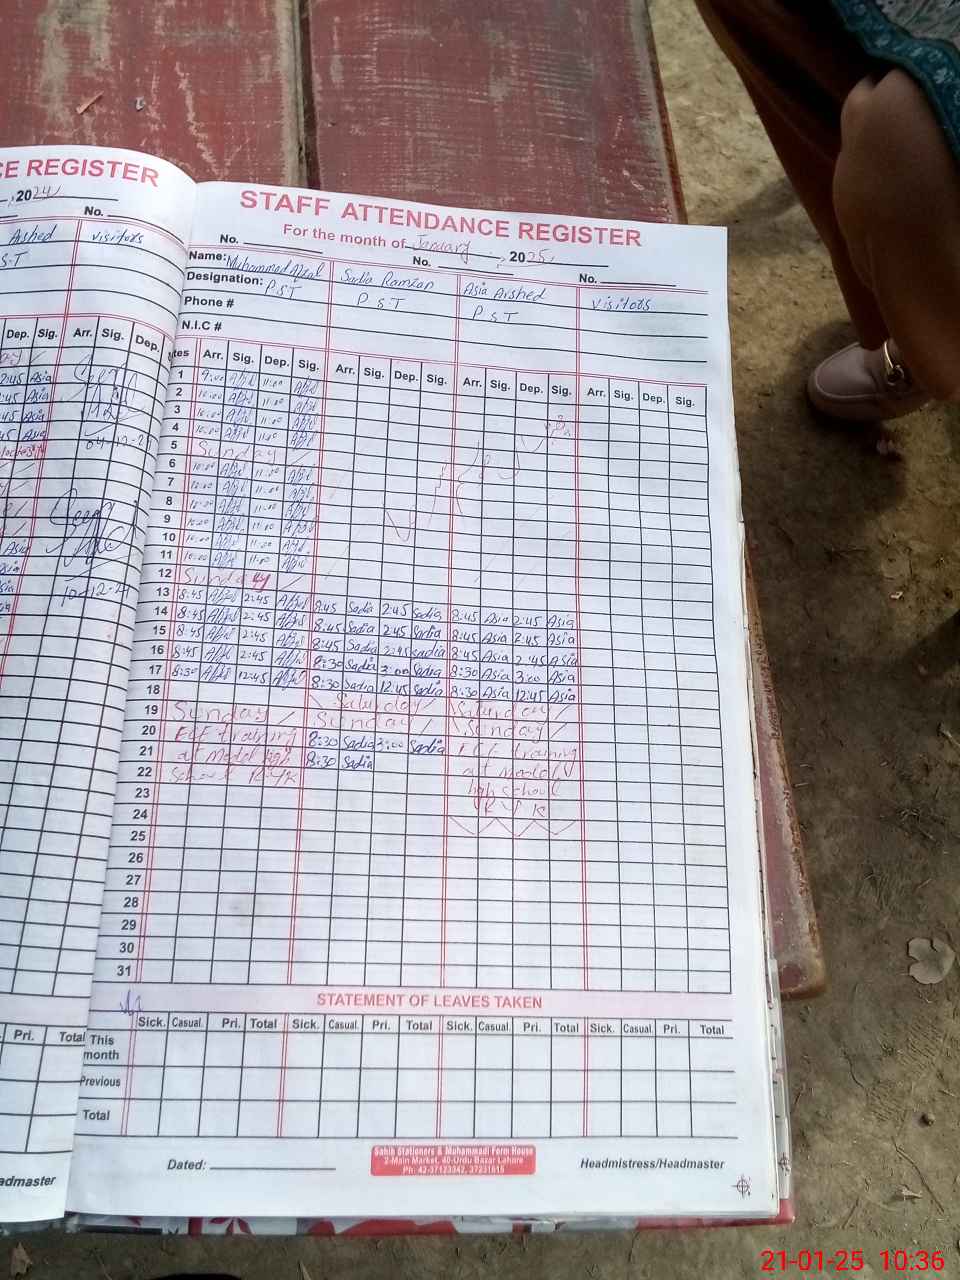 CE REGISTER
, 2024
No.
Arshed visitors
S.T
Dep. Sig. Arr. Sig. Dep.
2:45 Asia
:45 Asia
:45 Asia
45 Asia
04-12-24
Asia
10-12-24
Pri. Total
admaster
STAFF ATTENDANCE REGISTER
For the month of January 2025
No. No. No.
Name: Muhammad Afzal Sadia Ramzan Asia Arshed visitors
Designation: PST PST PST
Phone #
N.I.C #
tes Arr. Sig. Dep. Sig. Arr. Sig. Dep. Sig. Arr. Sig. Dep. Sig. Arr. Sig. Dep. Sig.
1 9:00 Afzal 11:00 Afzal
2 10:00 Afzal 11:00 Afzal
3 10:00 Afzal 11:00 Afzal
4 10:00 Afzal 11:00 Afzal
5 Sunday
6 10:00 Afzal 11:00 Afzal
7 10:00 Afzal 11:00 Afzal
8 10:00 Afzal 11:00 Afzal
9 10:00 Afzal 11:00 Afzal
10 10:00 Afzal 11:00 Afzal
11 10:00 Afzal 11:00 Afzal
12 Sunday
13 8:45 Afzal 2:45 Afzal 8:45 Sadia 2:45 Sadia 8:45 Asia 2:45 Asia
14 8:45 Afzal 2:45 Afzal 8:45 Sadia 2:45 Sadia 8:45 Asia 2:45 Asia
15 8:45 Afzal 2:45 Afzal 8:45 Sadia 2:45 Sadia 8:45 Asia 2:45 Asia
16 8:45 Afzal 2:45 Afzal 8:30 Sadia 3:00 Sadia 8:30 Asia 3:00 Asia
17 8:30 Afzal 12:45 Afzal 8:30 Sadia 12:45 Sadia 8:30 Asia 12:45 Asia
18 Saturday Saturday
19 Sunday Sunday Sunday
20 ECE training 8:30 Sadia 3:00 Sadia ECE training
21 at Model high 8:30 Sadia at Model
22 School R.Y.K high school
23 R Y K
24
25
26
27
28
29
30
31
STATEMENT OF LEAVES TAKEN
Sick. Casual. Pri. Total Sick. Casual. Pri. Total Sick. Casual. Pri. Total Sick. Casual. Pri. Total
This month
Previous
Total
Dated:
Sahib Stationers & Muhammadi Form House
2-Main Market, 40-Urdu Bazar Lahore
Ph: 42-37123342, 37231515
Headmistress/Headmaster
21-01-25 10:36